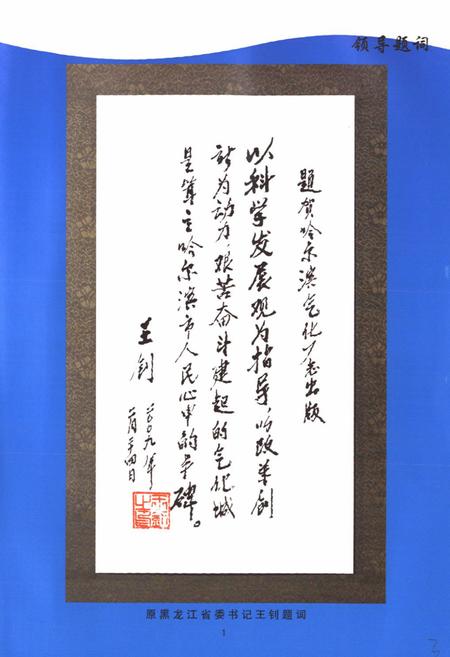 领导题词
题贺哈尔滨气化厂志出版
以科学发展观为指导，以改革创
新为动力，艰苦奋斗建起的气化城
是耸立哈尔滨市人民心中的丰碑。
王钊
二〇〇九年
二月二十四日
原黑龙江省委书记王钊题词
1
3